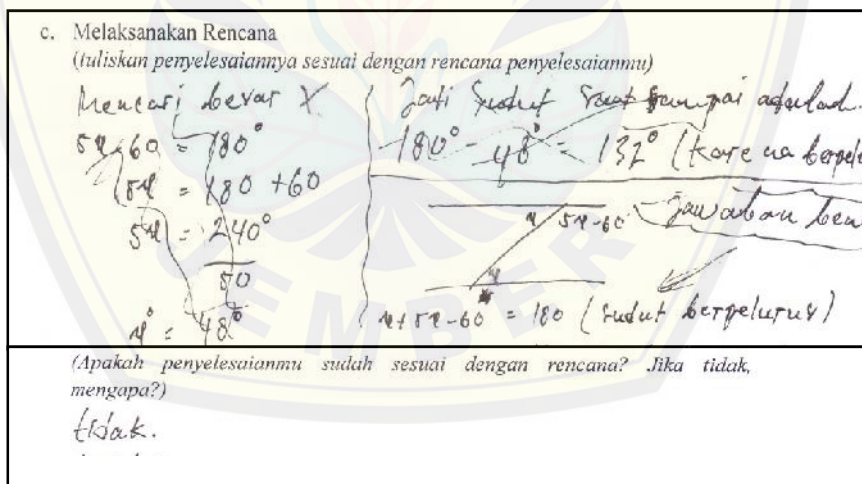 c. Melaksanakan Rencana
(tuliskan penyelesaiannya sesuai dengan rencana penyelesaianmu)
Mencari besar X
5x-60 = 180°
5x = 180 + 60
5x = 240°
50
x° = 48°
Jadi sudut sampai adalah
180° - 48° = 132° (karena berpelu
x 5x-60
x
Jawaban ben
x+5x-60 = 180 (sudut berpelurus)
JEMBER
(Apakah penyelesaianmu sudah sesuai dengan rencana? Jika tidak,
mengapa?)
tidak.